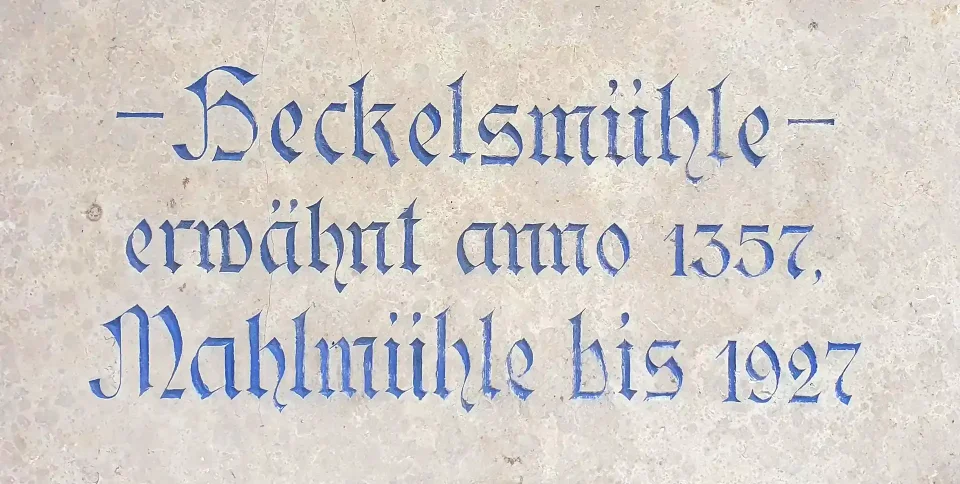 – Heckelsmühle –
erwähnt anno 1357,
Mahlmühle bis 1927